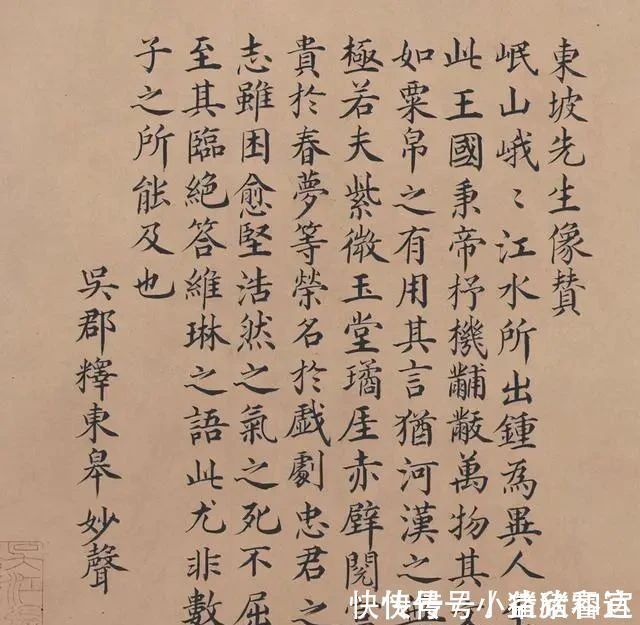 東坡先生像贊
岷山峨〻江水所出鍾為異人
此王國秉帝杼機黼黻萬物其
如粟帛之有用其言猶河漢之
極若夫紫微玉堂璚厓赤壁閱
貴於春夢等榮名於戲劇忠君之
志雖困愈堅浩然之氣之死不屈
至其臨絕答維琳之語此尤非數
子之所能及也
吳郡釋東皋妙聲